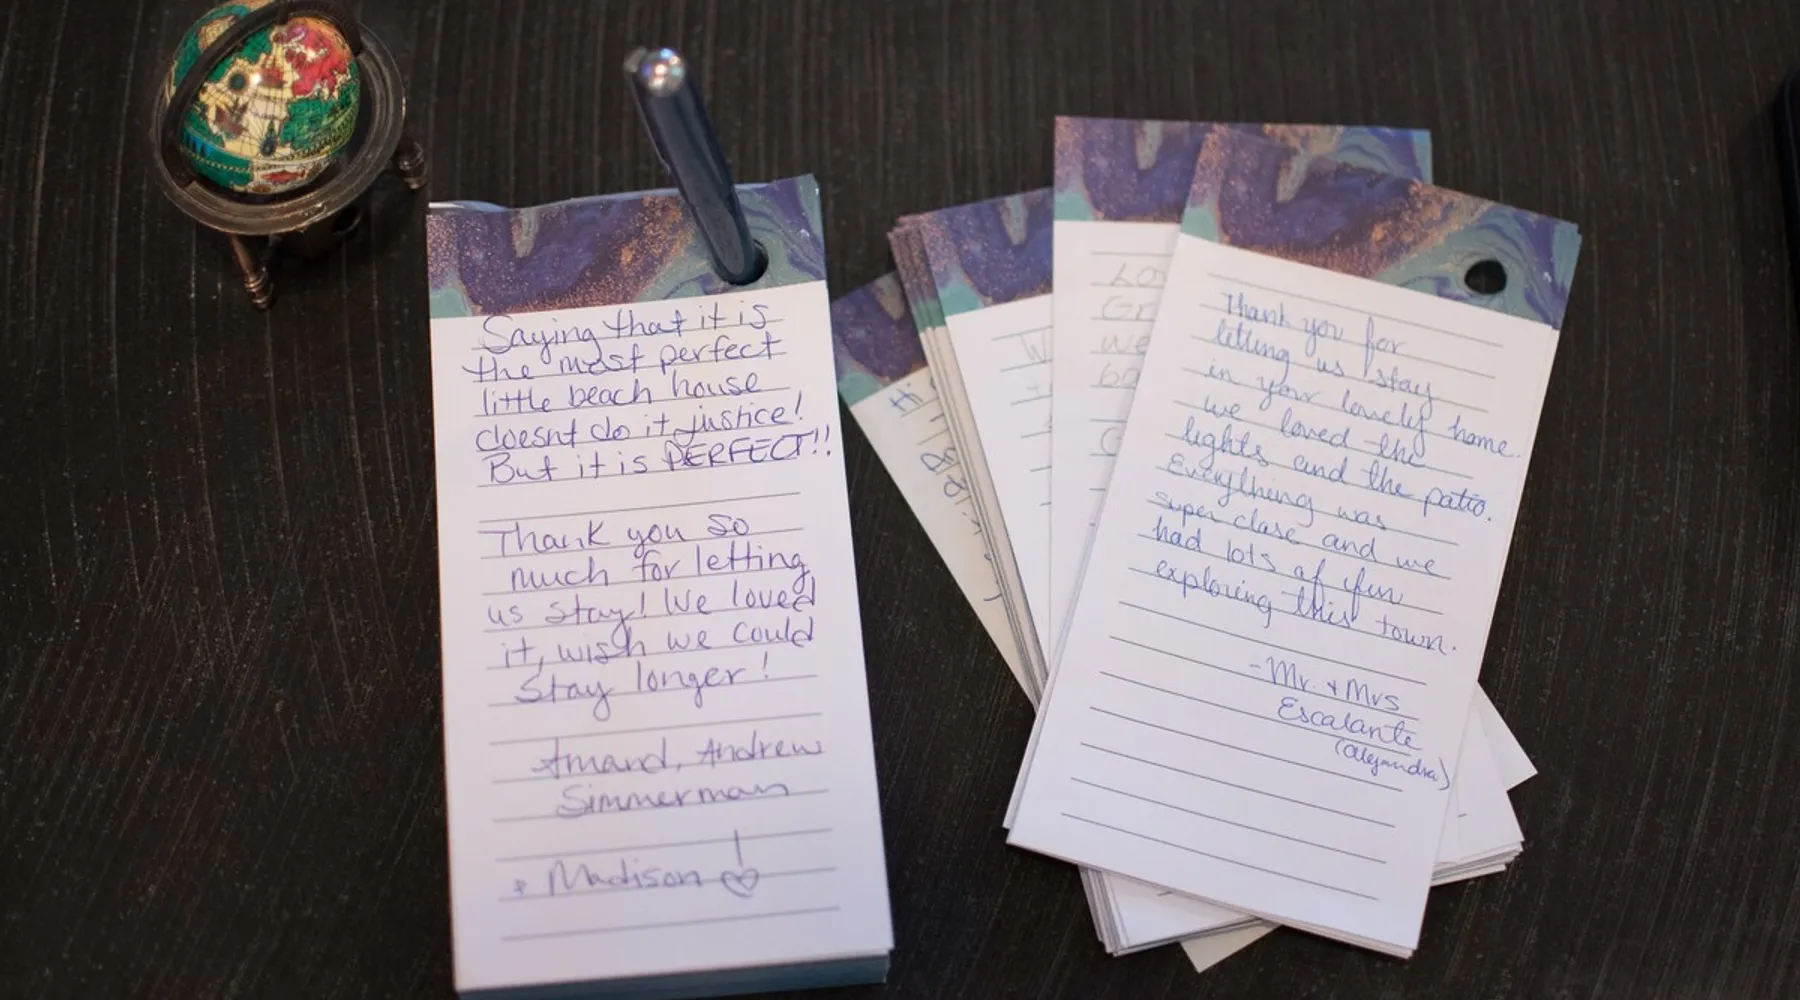 Saying that it is
the most perfect
little beach house
doesnt do it justice!
But it is PERFECT!!
Thank you so
much for letting
us stay! We loved
it, wish we could
stay longer!
Amand, Andrew
Simmerman
+ Madison
Hi
Thank you for
letting us stay
in your lovely home.
we loved the
lights and the patio.
Everything was
super clase and we
had lots of fun
exploring this town.
-Mr. + Mrs
Escalante
(alejandra)